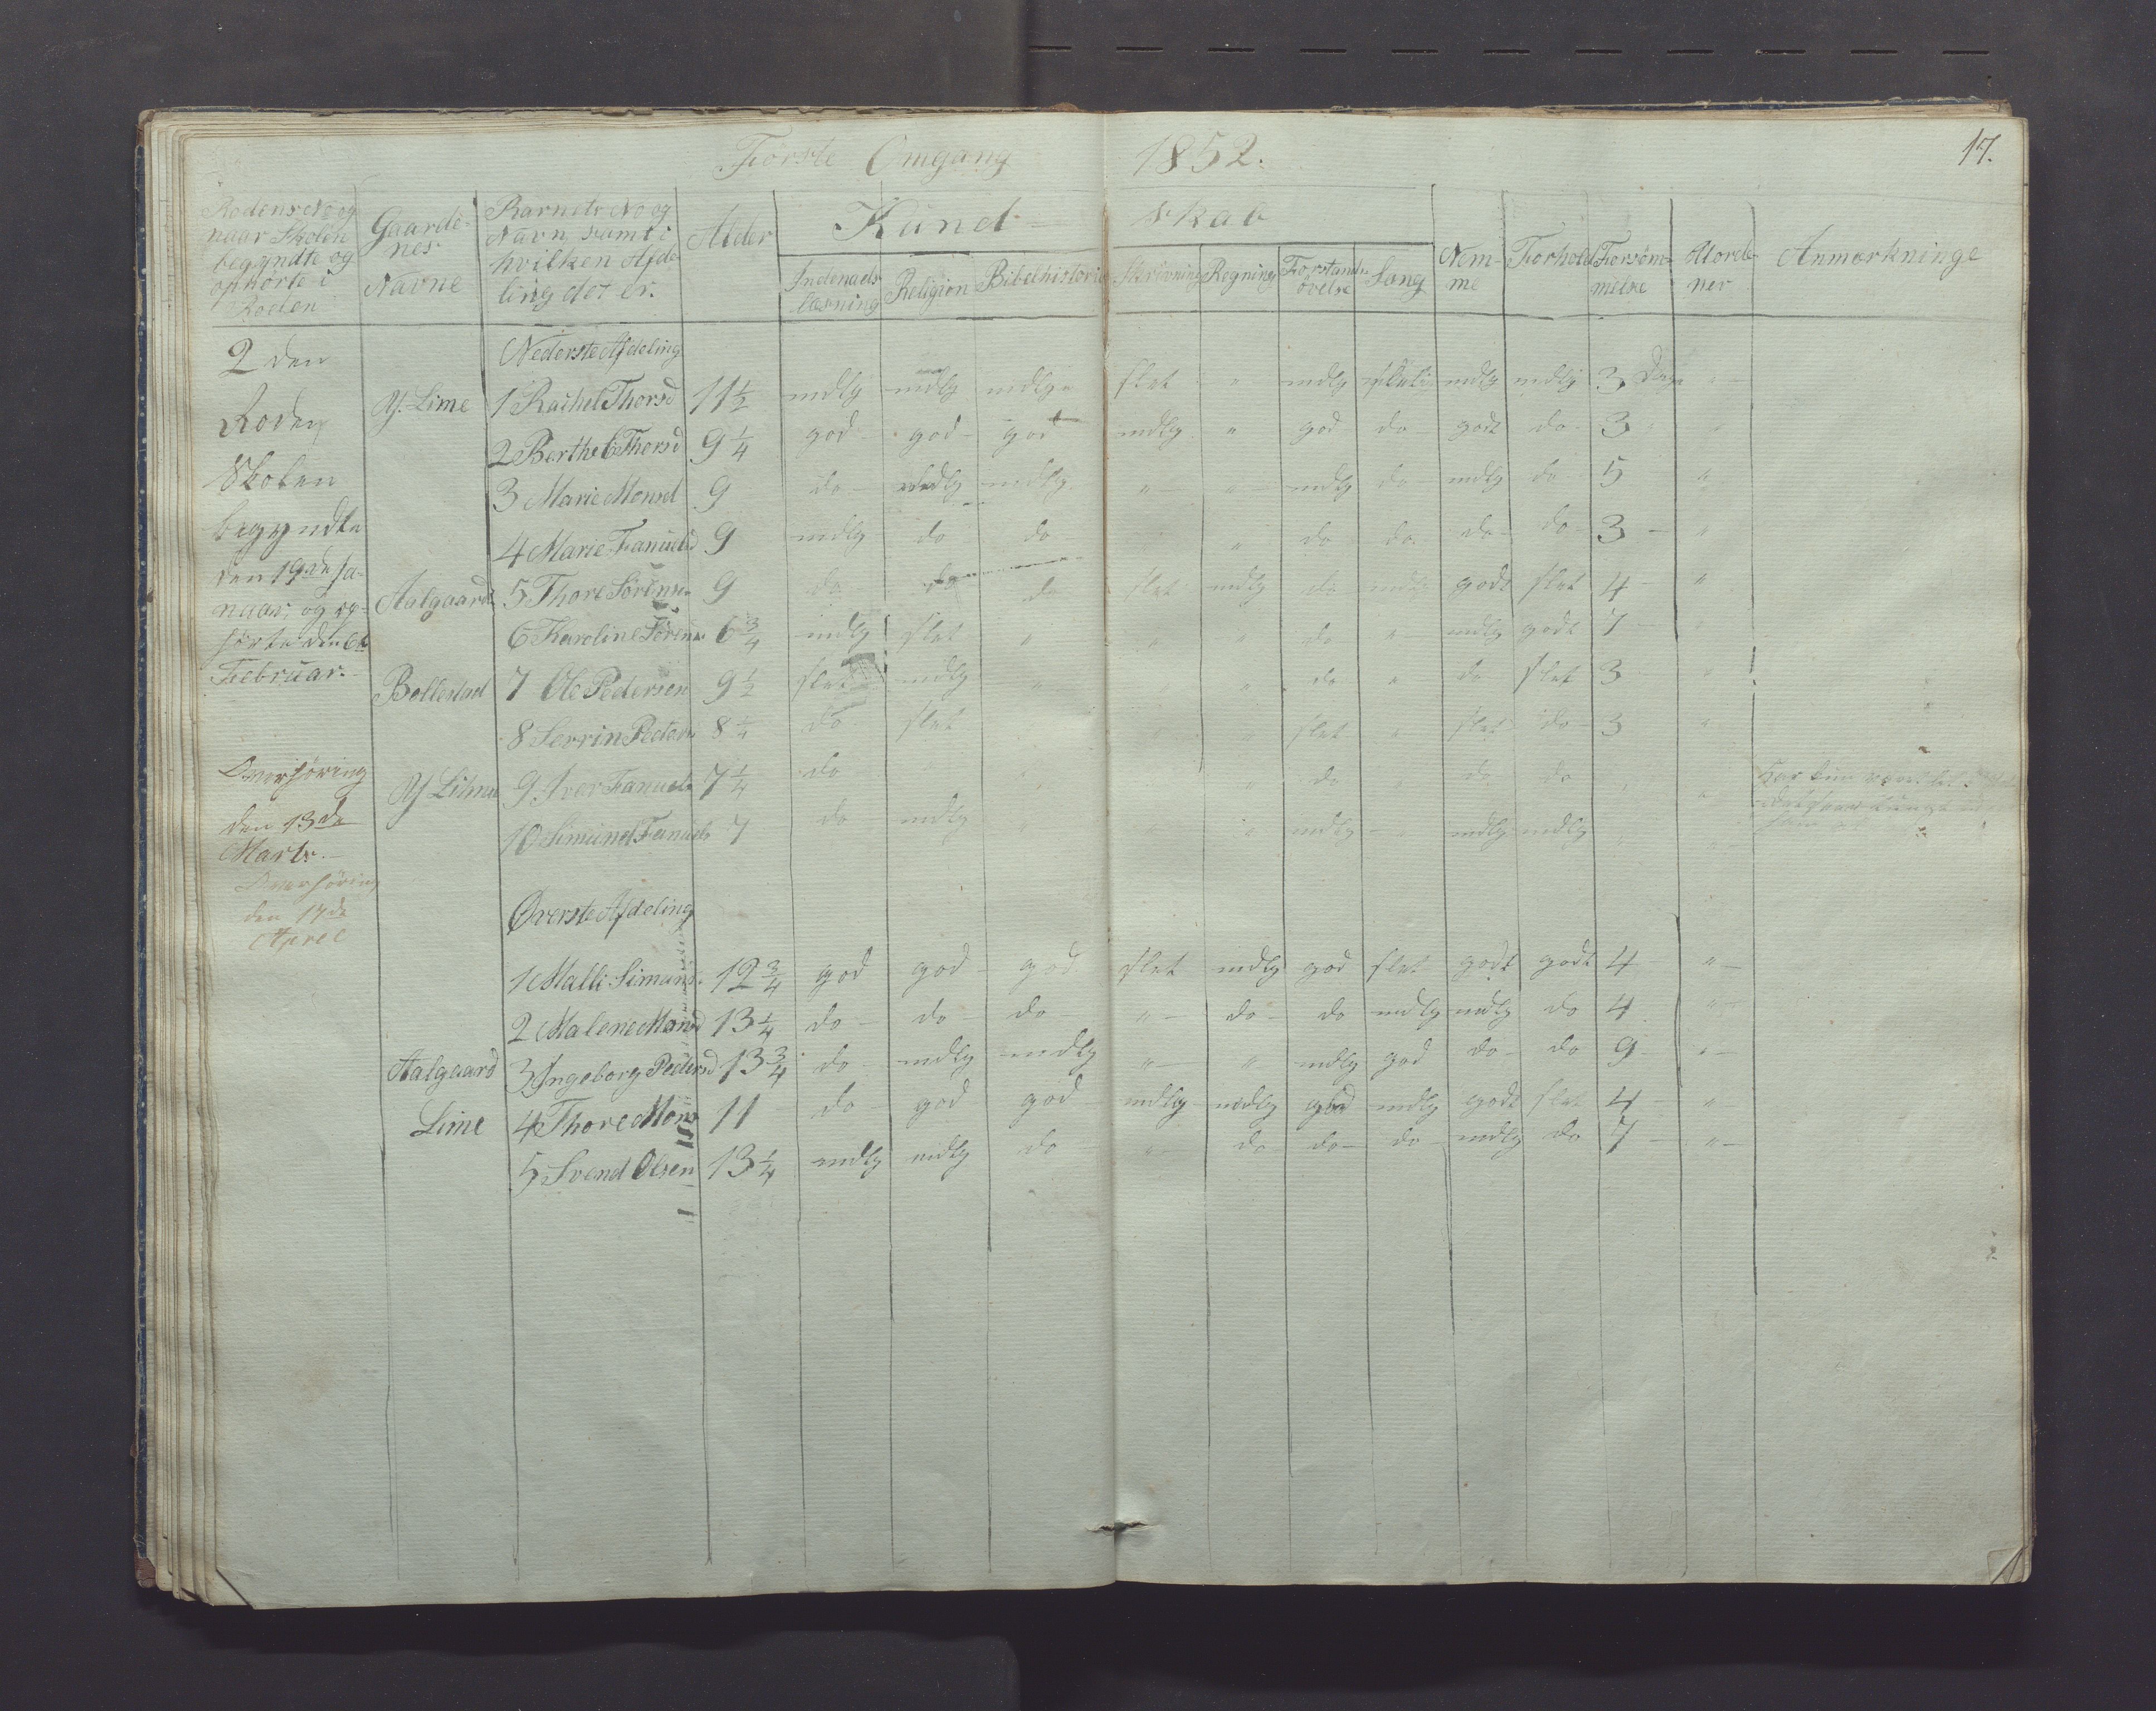 Første Omgang 1852.
17.
Rodens No og
naar Skolen
begyndte og
ophørte i
Roden
Gaarde-
nes
Navne
Barnets No og
Navn, samt i
hvilken Afde-
ling det er.
Alder
Kund- skab
Indenads-
læsning
Religion
Bibelhistorie
Skrivning
Regning
Forstands-
øvelse
Sang
Nem-
me
Forhold
Forsøm-
melse
Uorde-
ner
Anmærkninge
2den
Roden
Skolen
begyndte
den 19de Ja-
nuar, og op-
hørte den 6te
Februar.
Overhøring
den 13de
Marts.
Overhøring
den 17de
April
Nederste Afdeling
Y. Lime 1 Rachel Thorsd 11 1/2 mdlg mdlg mdlg slet " mdlg mdlg mdlg 3 Dage "
2 Berthe Thorsd 9 1/4 god god god mdlg " god do godt do 3 "
3 Marie Monsd 9 do mdlg mdlg " " mdlg do mdlg do 5 "
4 Marie Fanuelsd 9 mdlg do do " do do do do 3 "
Aalgaard 5 Thore Sørensen 9 do do do slet mdlg do mdlg godt slet 4 "
6 Karoline Sørens 6 3/4 mdlg slet " " " do " mdlg godt 7 "
Bollestad 7 Ole Pedersen 9 1/2 slet mdlg " " do " do slet 3 "
8 Serrin Peders 8 1/4 do slet " slet " slet do 3 "
Y Lime 9 Iver Fanuels 7 1/4 do " do " do do " " Har kun
10 Simund Fanuels 7 do mdlg " " mdlg " mdlg mdlg " "
Øverste Afdeling
1 Malli Simons 12 3/4 god god god slet mdlg god slet godt godt 4 "
2 Malene Monsd 13 1/4 do do do " do do mdlg mdlg do 4 "
Aalgaard 3 Ingeborg Pedersd 13 3/4 do mdlg mdlg " " mdlg god do do 9 "
Lime 4 Thore Mons 11 do god god mdlg mdlg god mdlg godt slet 4 "
5 Svend Olsen 13 1/4 mdlg mdlg do " do do do mdlg do 7 "